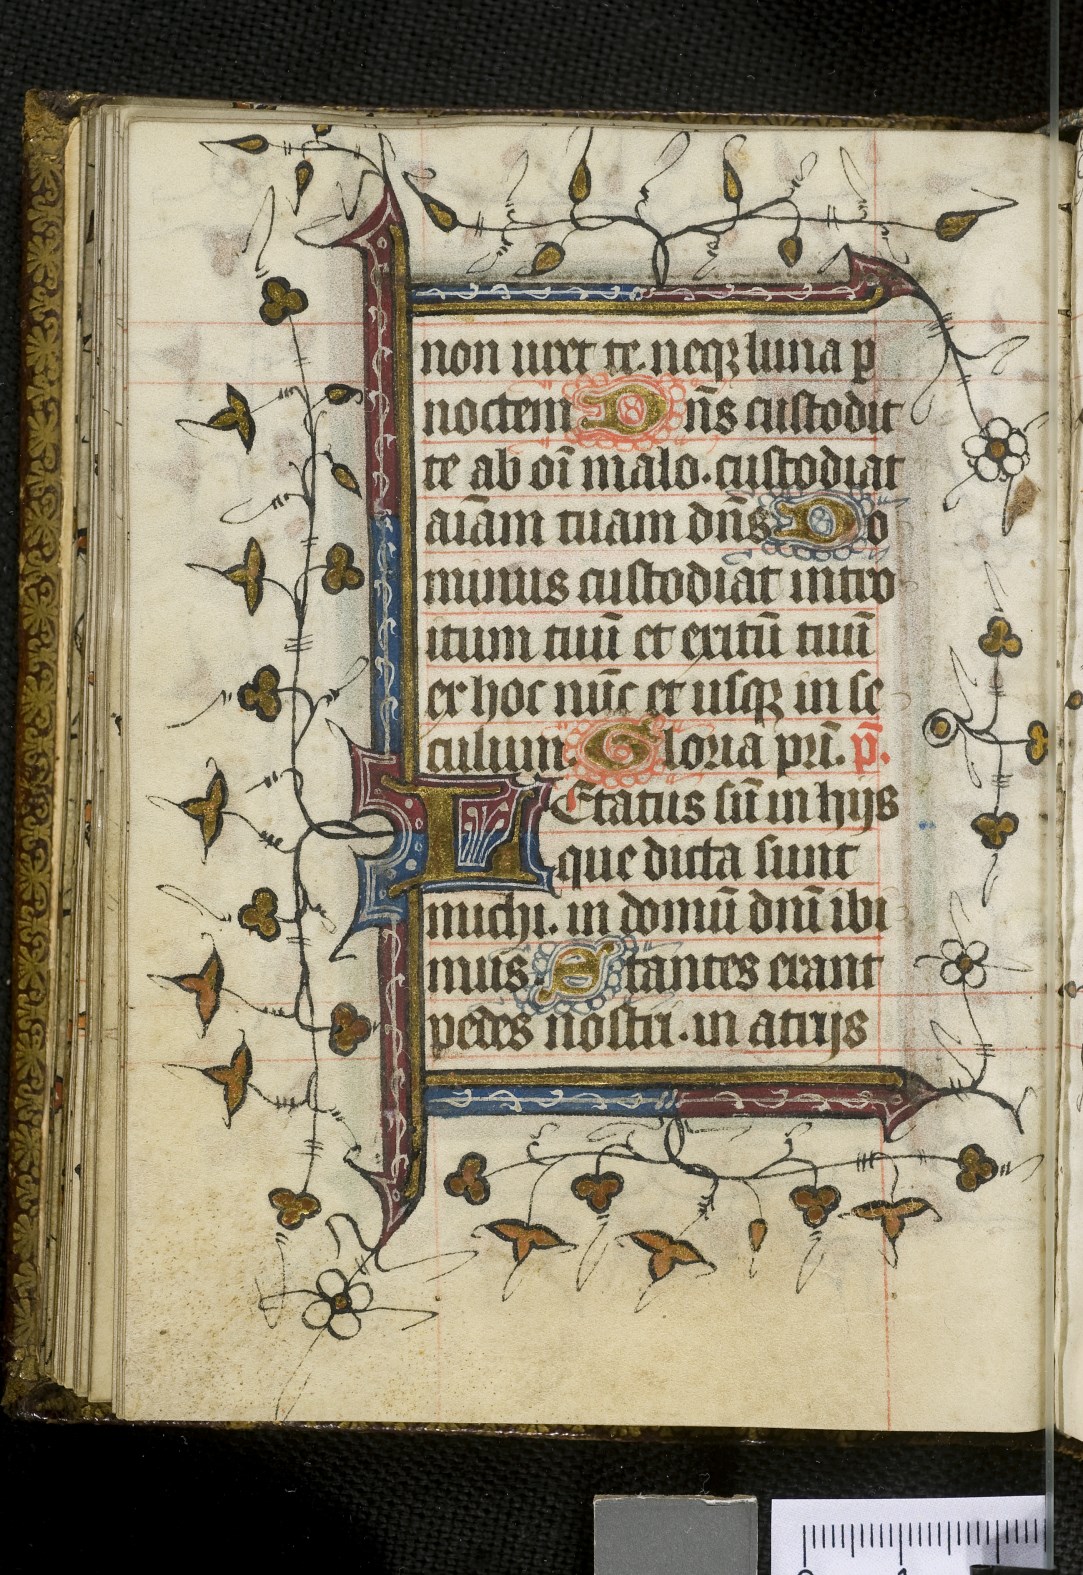 non uret te. neqꝫ luna ꝑ
noctem Dn̄s custodit
te ab oī malo. custodiat
aīam tuam dn̄s Do
minus custodiat intro
itum tuū et exitū tuū
ex hoc nūc et usqꝫ in se
culum. Gloria pr̄i. p̄.
Letatus sū in hijs
que dicta sunt
michi. in domū dn̄i ibi
mus. Stantes erant
pedes nostri. in atrijs
0 1